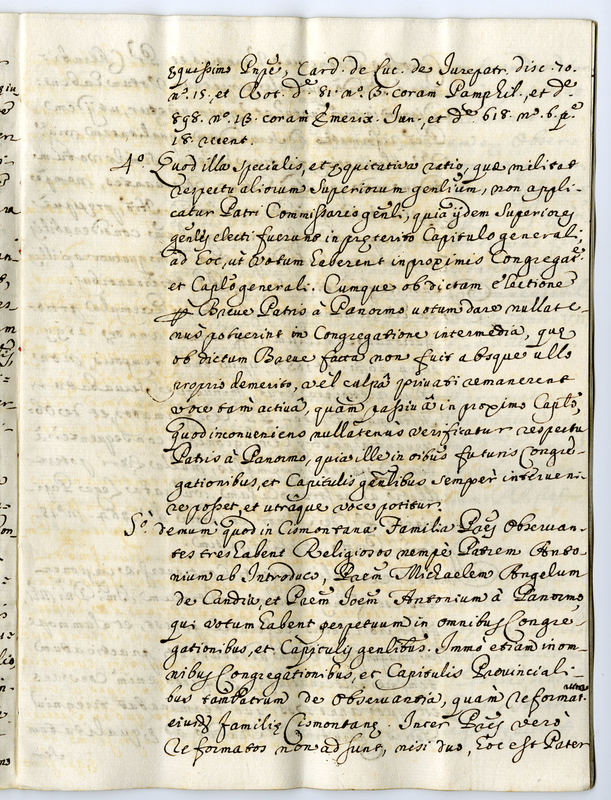 æquissimo Pnpe, Card. de Luc. de Jurepatr. disc. 70.
nº. 15, et Rot. dº. 81. nº. 3. coram Pamphil., et dº.
898. nº. 13. coram Emerix. Jun., et dº. 618. nº. 6. p.
18. recent.
4º. Quod illa specialis, et æquitativa ratio, quæ militat
respectu aliorum Superiorum gen̄lium, non appli-
catur Patri Commissario gen̄li, quia ijdem Superiores
gen̄les electi fuerunt in præterito Capitulo generali,
ad hoc, ut votum haberent in proximis Congregat.
et Caplo generali. Cumque ob dictam electione
Breve Patris à Panormo votum dare nullate-
nus potuerint in Congregatione intermedia, quæ
ob dictum Breve facta non fuit absque ullo
proprio demerito, vel culpâ privati remanerent
voce tam activâ, quàm passivâ in proximo Caplo,
quod inconveniens nullatenus verificatur respectu
Patris à Panormo, quia ille in oibus futuris Congre-
gationibus, et Capitulis gen̄libus semper interveni-
re posset, et utraque voce potitur.
5º. demum quod in Cismontana Familia Paēs Observan-
tes tres habent Religiosos nempè Patrem Anto-
nium ab Introduco, Paēm Michaelem Angelum
de Candia, et Paēm Joēm Antonium à Panormo,
qui votum habent perpetuum in omnibus Congre-
gationibus, et Capitulis gen̄libus. Immò etiam in om-
nibus Congregationibus, et Capitulis Provinciali-
bus tam Patrum de Observantia, quàm Reformat.
eiusdē Familiæ Cismontanę. Inter Paēs verò
Reformatos non adsunt, nisi duo, hoc est Pater